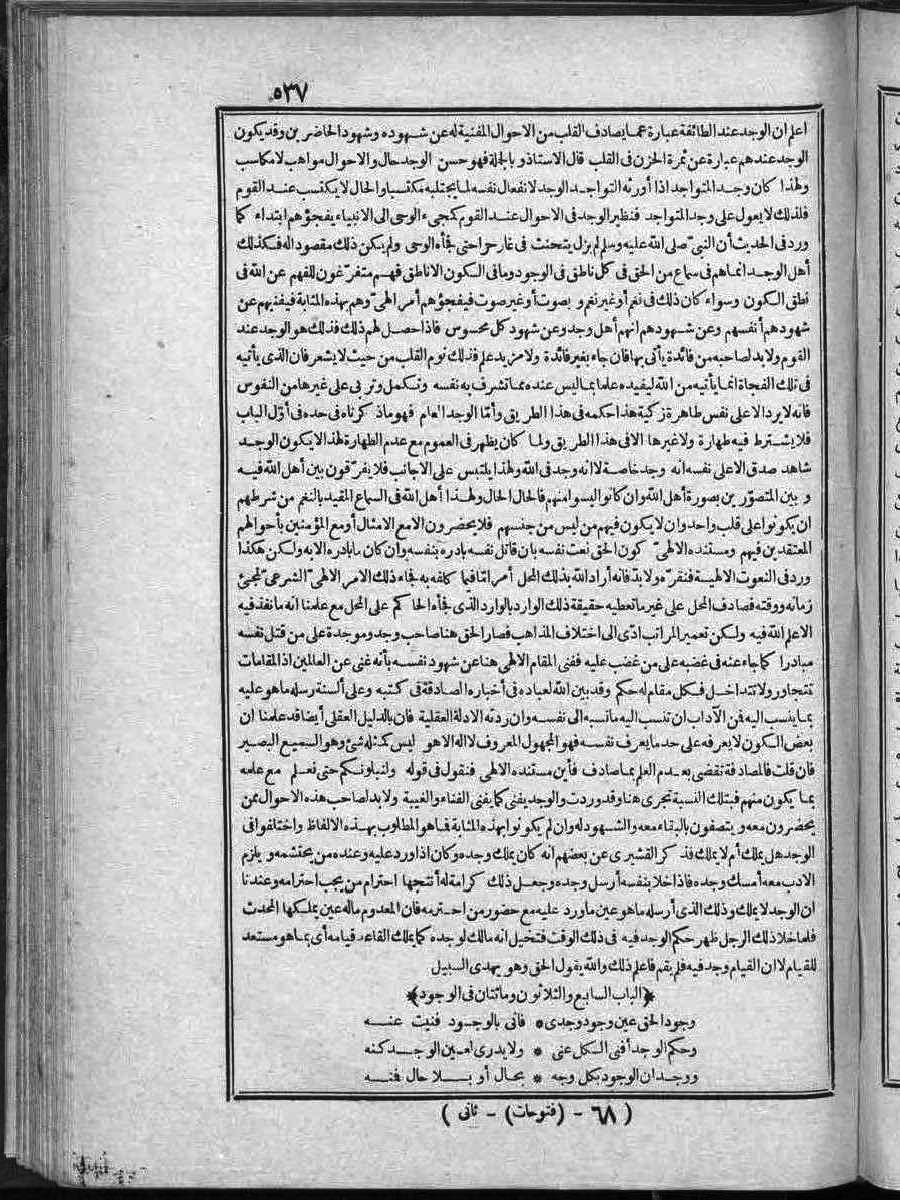 ٥٣٧
اعلم ان الوجد عند الطائفة عبارة عما يصادف القلب من الاحوال المفنية له عن شهوده وشهود الحاضرين وقد يكون
الوجد عندهم عبارة عن ثمرة الحزن فى القلب قال الاستاذ وبالجلة فهو حسن الوجد حال والاحوال مواهب لا مكاسب
ولهذا كان وجد المتواجد اذا أورثه التواجد الوجد لانفعال نفسه لما يجتلبه مكتسبا والحال لا يكتسب عند القوم
فلذلك لا يعول على وجد المتواجد فنظير الوجد فى الاحوال عند القوم كمجىء الوحى الى الانبياء يفجؤهم ابتداء كما
ورد فى الحديث أن النبىّ صلى الله عليه وسلم لم يزل يتحنث فى غار حرا حتى فجأه الوحى ولم يكن ذلك مقصودا له فكذلك
أهل الوجد انما هم فى سماع من الحق فى كل ناطق فى الوجود وما فى الكون الا ناطق فهم متفرّغون للفهم عن الله فى
نطق الكون وسواء كان ذلك فى نغم أو غير نغم و بصوت أو غير صوت فيفجؤهم أمر الهىّ وهم بهذه المثابة فيفنيهم عن
شهودهم أنفسهم وعن شهودهم انهم أهل وجد وعن شهود كل محسوس فاذا حصل لهم ذلك فذلك هو الوجد عند
القوم ولا بد لصاحبه من فائدة يأتى بها فان جاء بغير فائدة ولا مزيد علم فذلك نوم القلب من حيث لا يشعر فان الذى يأتيه
فى تلك الفجأة انما يأتيه من الله ليفيده علما بما ليس عنده مما تشرف به نفسه وتكمل وتربى على غيرها من النفوس
فانه لا يرد الا على نفس طاهرة زكية هذا حكمه فى هذا الطريق وأمّا الوجد العام فهو ماذكرناه فى حده فى أوّل الباب
فلا يشترط فيه طهارة ولا غيرها الا فى هذا الطريق ولما كان يظهر فى العموم مع عدم الطهارة لهذا لا يكون الوجد
شاهد صدق الا على نفسه انه وجد خاصة لا انه وجد فى الله ولهذا يلتبس على الاجانب فلا يفرّقون بين أهل الله فيه
و بين المتصوّرين بصورة أهل الله وان كانوا ليسوا منهم فالحال الحال ولهذا أهل الله فى السماع المقيد بالنغم من شرطهم
ان يكونوا على قلب واحد وان لا يكون فيهم من ليس من جنسهم فلا يحضرون الا مع الامثال أو مع المؤمنين بأحوالهم
المعتقدين فيهم ومستنده الالهىّ كون الحق نعت نفسه بان قاتل نفسه بادره بنفسه وان كان ما بادره الا به ولكن هكذا
ورد فى النعوت الالهية فنقرّه ولا بدّ فانه أراد الله بذلك المحل أمر امّا فيما كلفه به فجاء ذلك الامر الالهىّ الشرعى لمجئ
زمانه ووقته فصادف المحل على غير ما تعطيه حقيقة ذلك الوارد بالوارد الذى فجأه الحاكم على المحل مع علمنا انه ما نفذ فيه
الا علم الله فيه ولكن تعمير المراتب ادّى الى اختلاف المذاهب فصار الحق هنا صاحب وجد وموجدة على من قتل نفسه
مبادرا كما جاء عنه فى غضبه على من غضب عليه ففنى المقام الالهى هنا عن شهود نفسه بأنه غنى عن العالمين اذ المقامات
تتجاور ولا تتداخل فكل مقام له حكم وقد بين الله لعباده فى أخباره الصادقة فى كتبه وعلى ألسنة رسله ما هو عليه
بما ينسب اليه فمن الآداب ان تنسب اليه ما نسبه الى نفسه وان ردّته الادلة العقلية فان بالدليل العقلى أيضا قد علمنا ان
بعض الكون لا يعرفه على حد ما يعرف نفسه فهو المجهول المعروف لا اله الا هو ليس كمثله شئ وهو السميع البصير
فان قلت فالمصادفة تقضى بعدم العلم بما صادف فأين مستنده الالهى فنقول فى قوله ولنبلونكم حتى نعلم مع علمه
بما يكون منهم فبتلك النسبة تجرى هنا وقد وردت والوجد يفنى كما يفنى الفناء والغيبة ولا بد لصاحب هذه الاحوال ممن
يحضرون معه و يتصفون بالبقاء معه والشهود له وان لم يكونوا بهذه المثابة فما هو المطلوب بهذه الالفاظ واختلفوا فى
الوجد هل يملك أم لا يملك فذكر القشيرى عن بعضهم انه كان يملك وجده وكان اذا ورد عليه وعنده من يحتشمه و يلزم
الادب معه أمسك وجده فاذا خلا بنفسه أرسل وجده وجعل ذلك كرامة له أنتجها احترام من يجب احترامه وعندنا
ان الوجد لا يملك وذلك الذى أرسله ما هو عين ما ورد عليه مع حضور من احترمه فان المعدوم ماله عين يملكها المحدث
فلما خلا ذلك الرجل ظهر حكم الوجد فيه فى ذلك الوقت فتخيل انه مالك لوجده كما يملك القاعد قيامه أى بما هو مستعد
للقيام لا ان القيام وجد فيه فلم يقم فاعلم ذلك والله يقول الحق وهو يهدى السبيل
﴿الباب السابع والثلاثون ومائتان فى الوجود﴾
وجود الحق عين وجود وجدى * فانى بالوجود فنيت عنه
وحكم الوجد أفنى الكل عنى * ولا يدرى لعين الوجد كنه
ووجدان الوجود بكل وجه * بحال أو بلا حال فنه
( ٦٨ - (فتوحات) - ثانى )